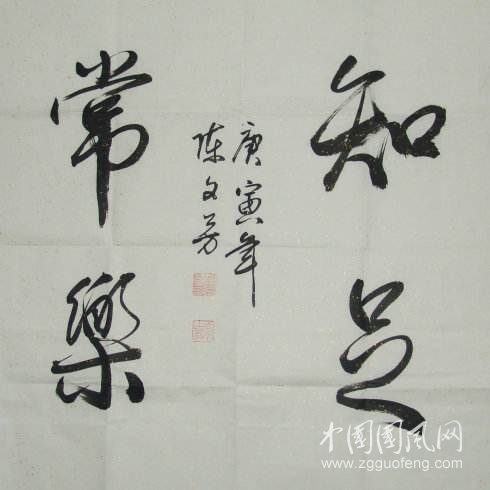 知足
常樂
庚寅年
陈文芳
中國國风网
www.zgguofeng.com